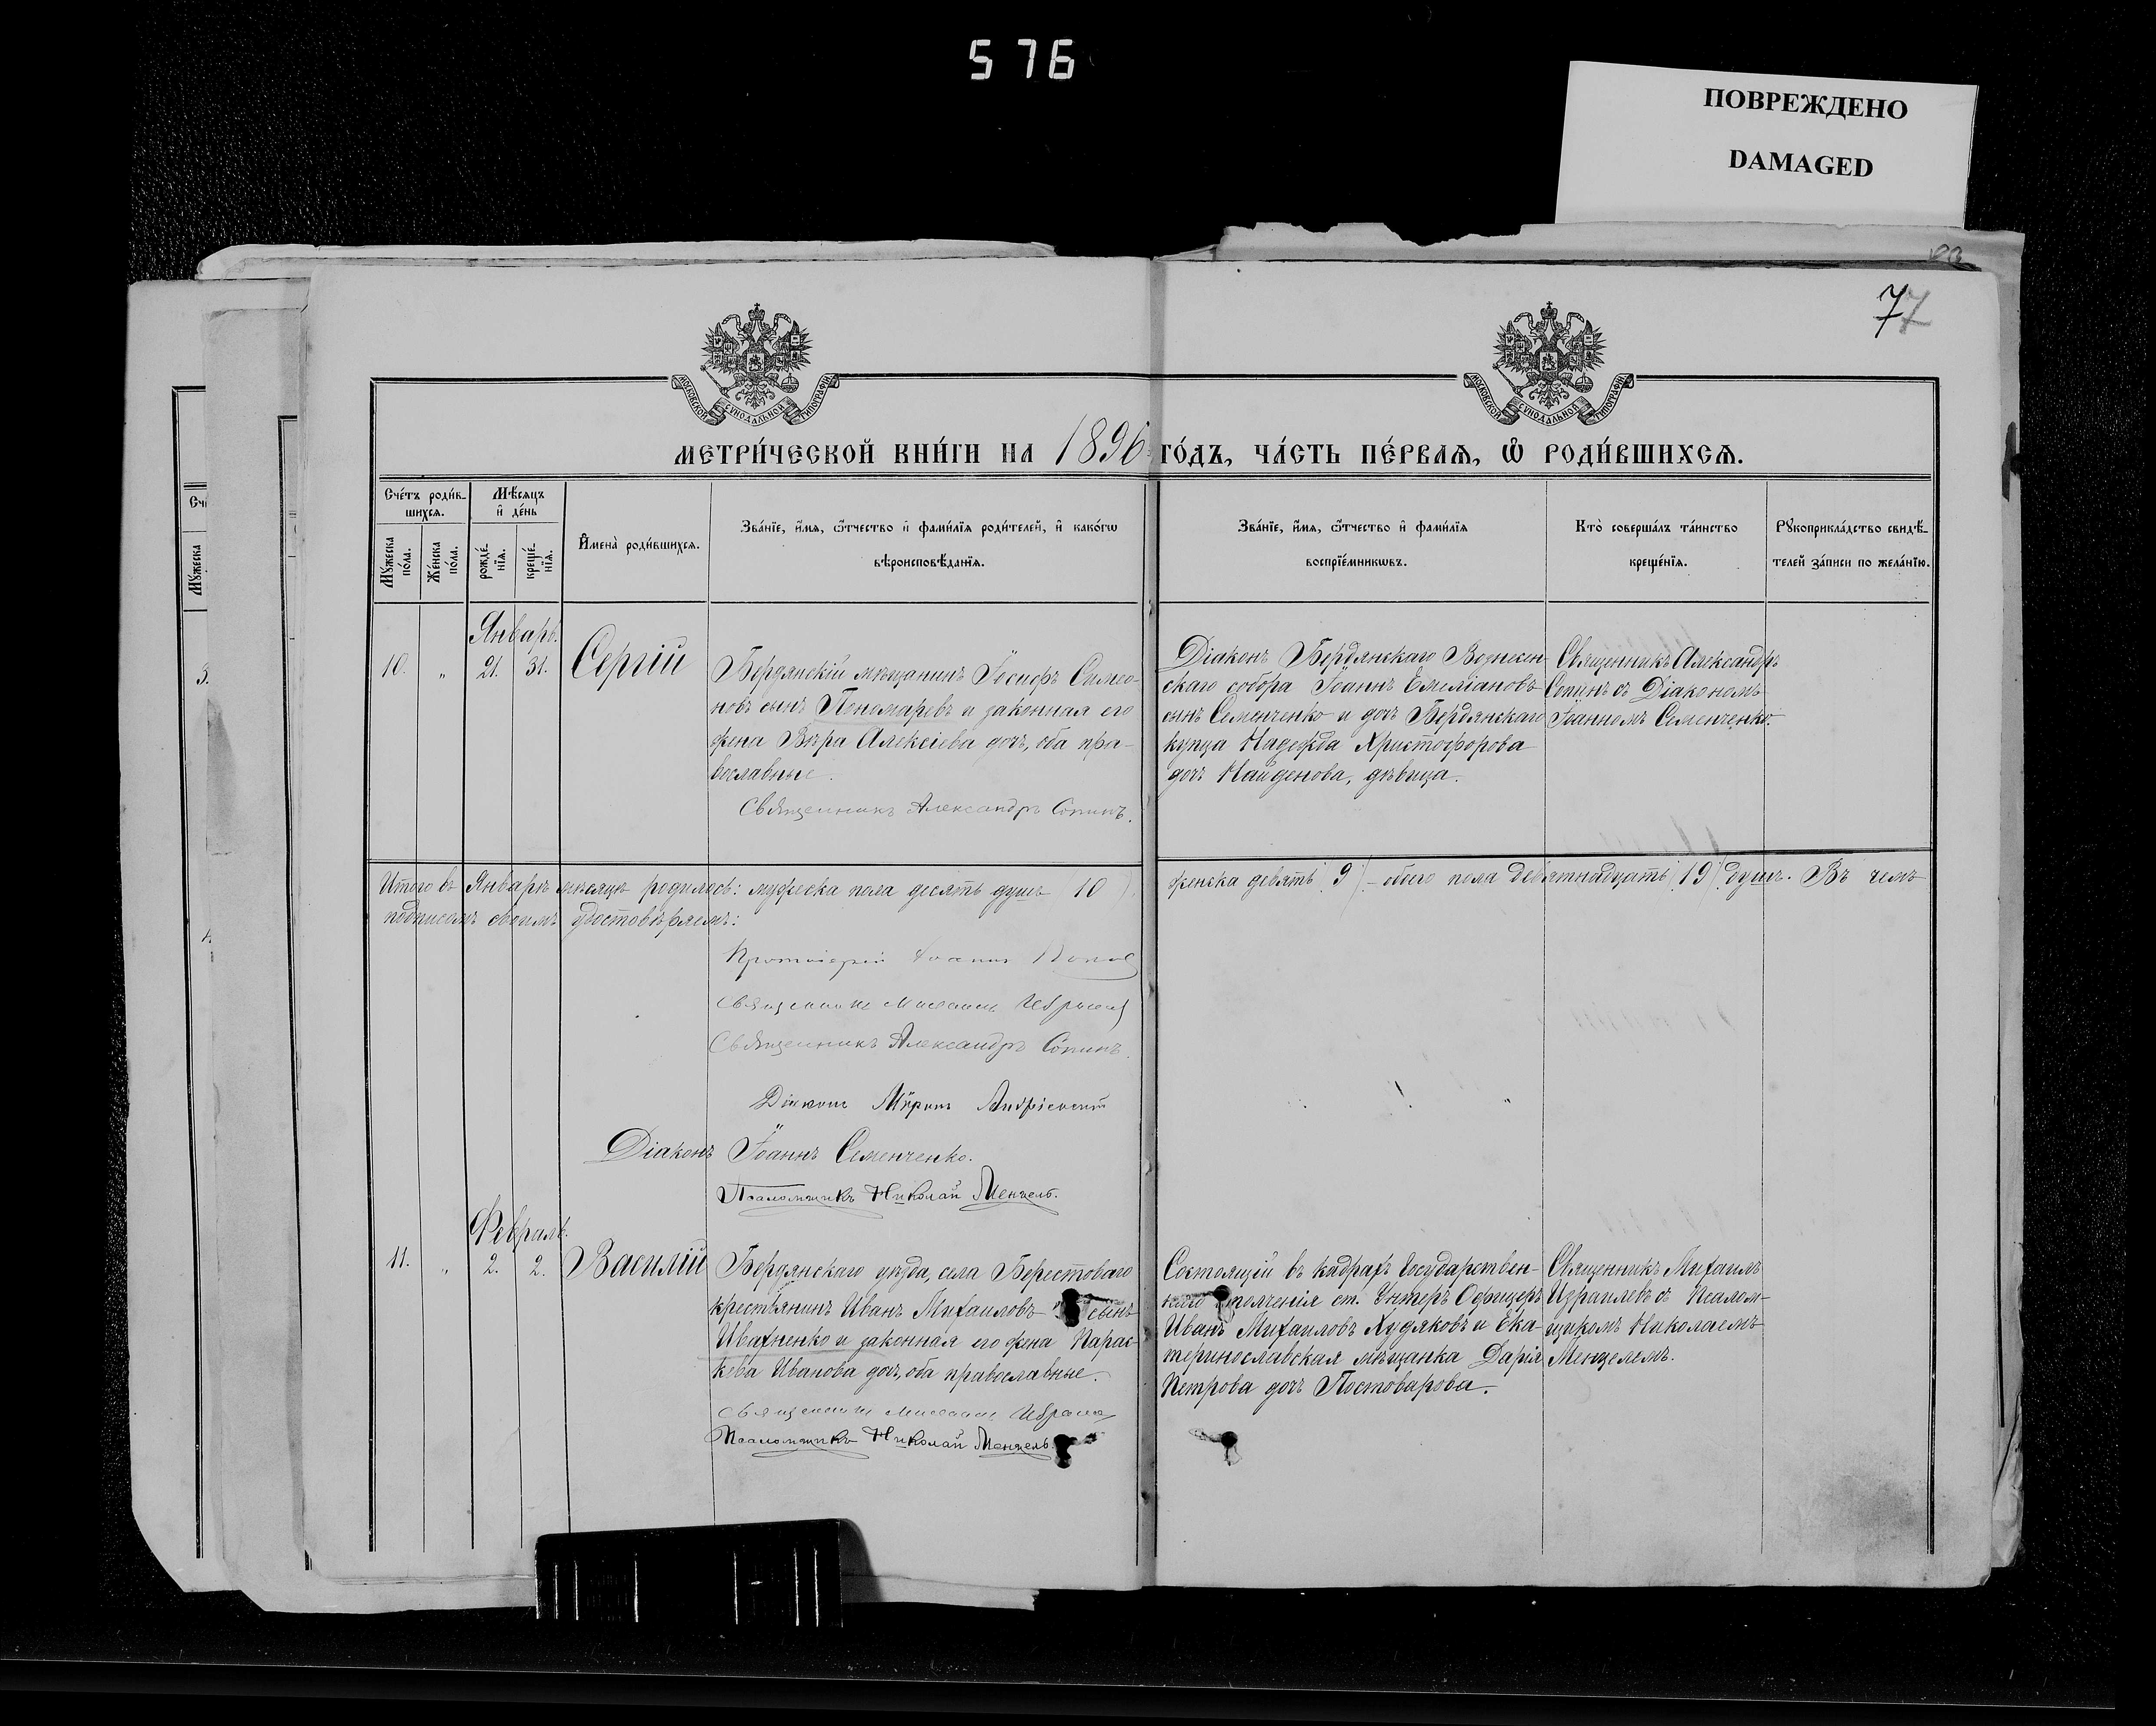 576
ПОВРЕЖДЕНО
DAMAGED
77
МОСКОВСКОЙ СУНОДАЛЬНОЙ ТИПОГРАФІИ
МОСКОВСКОЙ СУНОДАЛЬНОЙ ТИПОГРАФІИ
МЕТРИ́ЧЕСКОЙ КНИ́ГИ НА 1896 ГО́ДЪ, ЧА́СТЬ ПЕ́РВАѦ, Ѡ҆ РОДИ́ВШИХСѦ.
Сче́тъ роди́в-
шихсѧ.
Мꙋ́жеска по́ла.
Же́нска по́ла.
Мѣ́сяцъ
и҆ де́нь
рожде́-
нїѧ.
креще́-
нїѧ.
И҆мена̀ роди́вшихсѧ.
Зва́нїе, и҆́мѧ, ѻ҆́тчество и҆ фами́лїѧ роди́телей, и҆ како́гѡ
вѣроисповѣ́данїѧ.
Зва́нїе, и҆́мѧ, ѻ҆́тчество и҆ фами́лїѧ
воспрїе́мникѡвъ.
Кто̀ соверша́лъ та́инство
креще́нїѧ.
Рꙋкоприкла́дство свидѣ́-
телей за́писи по жела́нїю.
Январь.
10. „ 21. 31. Сергій
Бердянскій мѣщанинъ Іосифъ Симео-
новъ сынъ Пономаревъ и законная его
жена Вѣра Алексіева дочь, оба пра-
вославные.
Священникъ Александръ Сопинъ.
Діаконъ Бердянскаго Вознесен-
скаго собора Іоаннъ Емеліановъ
сынъ Семенченко и дочь Бердянскаго
купца Надежда Христофорова
дочь Найденова, дѣвица.
Священникъ Александръ
Сопинъ съ Діакономъ
Іоанномъ Семенченко.
Итого въ Январѣ мѣсяцѣ родилось: мужеска пола десять душъ 10) женска девять (9) – обоего пола девятнадцать (19) душъ. Въ чемъ
подписомъ своимъ удостовѣряемъ:
Протоіерей Іоаннъ Попов
Священникъ Михаилъ Израилев
Священникъ Александръ Сопинъ.
Діаконъ Міронъ Андріевскій
Діаконъ Іоаннъ Семенченко.
Псаломщикъ Николай Менцель.
Февраль.
11. „ 2. 2. Василій
Бердянскаго уѣзда, села Берестоваго
крестьянинъ Иванъ Михаиловъ сынъ
Ивахненко и законная его жена Парас-
кева Иванова дочь, оба православные.
Священникъ Михаилъ Израилев
Псаломщикъ Николай Менцель.
Состоящій въ кадрахъ Государствен-
наго ополченія ст. Унтеръ Офицеръ
Иванъ Михаиловъ Худяковъ и Ека-
теринославская мѣщанка Дарія
Петрова дочь Постоварова.
Священникъ Михаилъ
Израилевъ съ Псалом-
щикомъ Николаемъ
Менцелемъ.